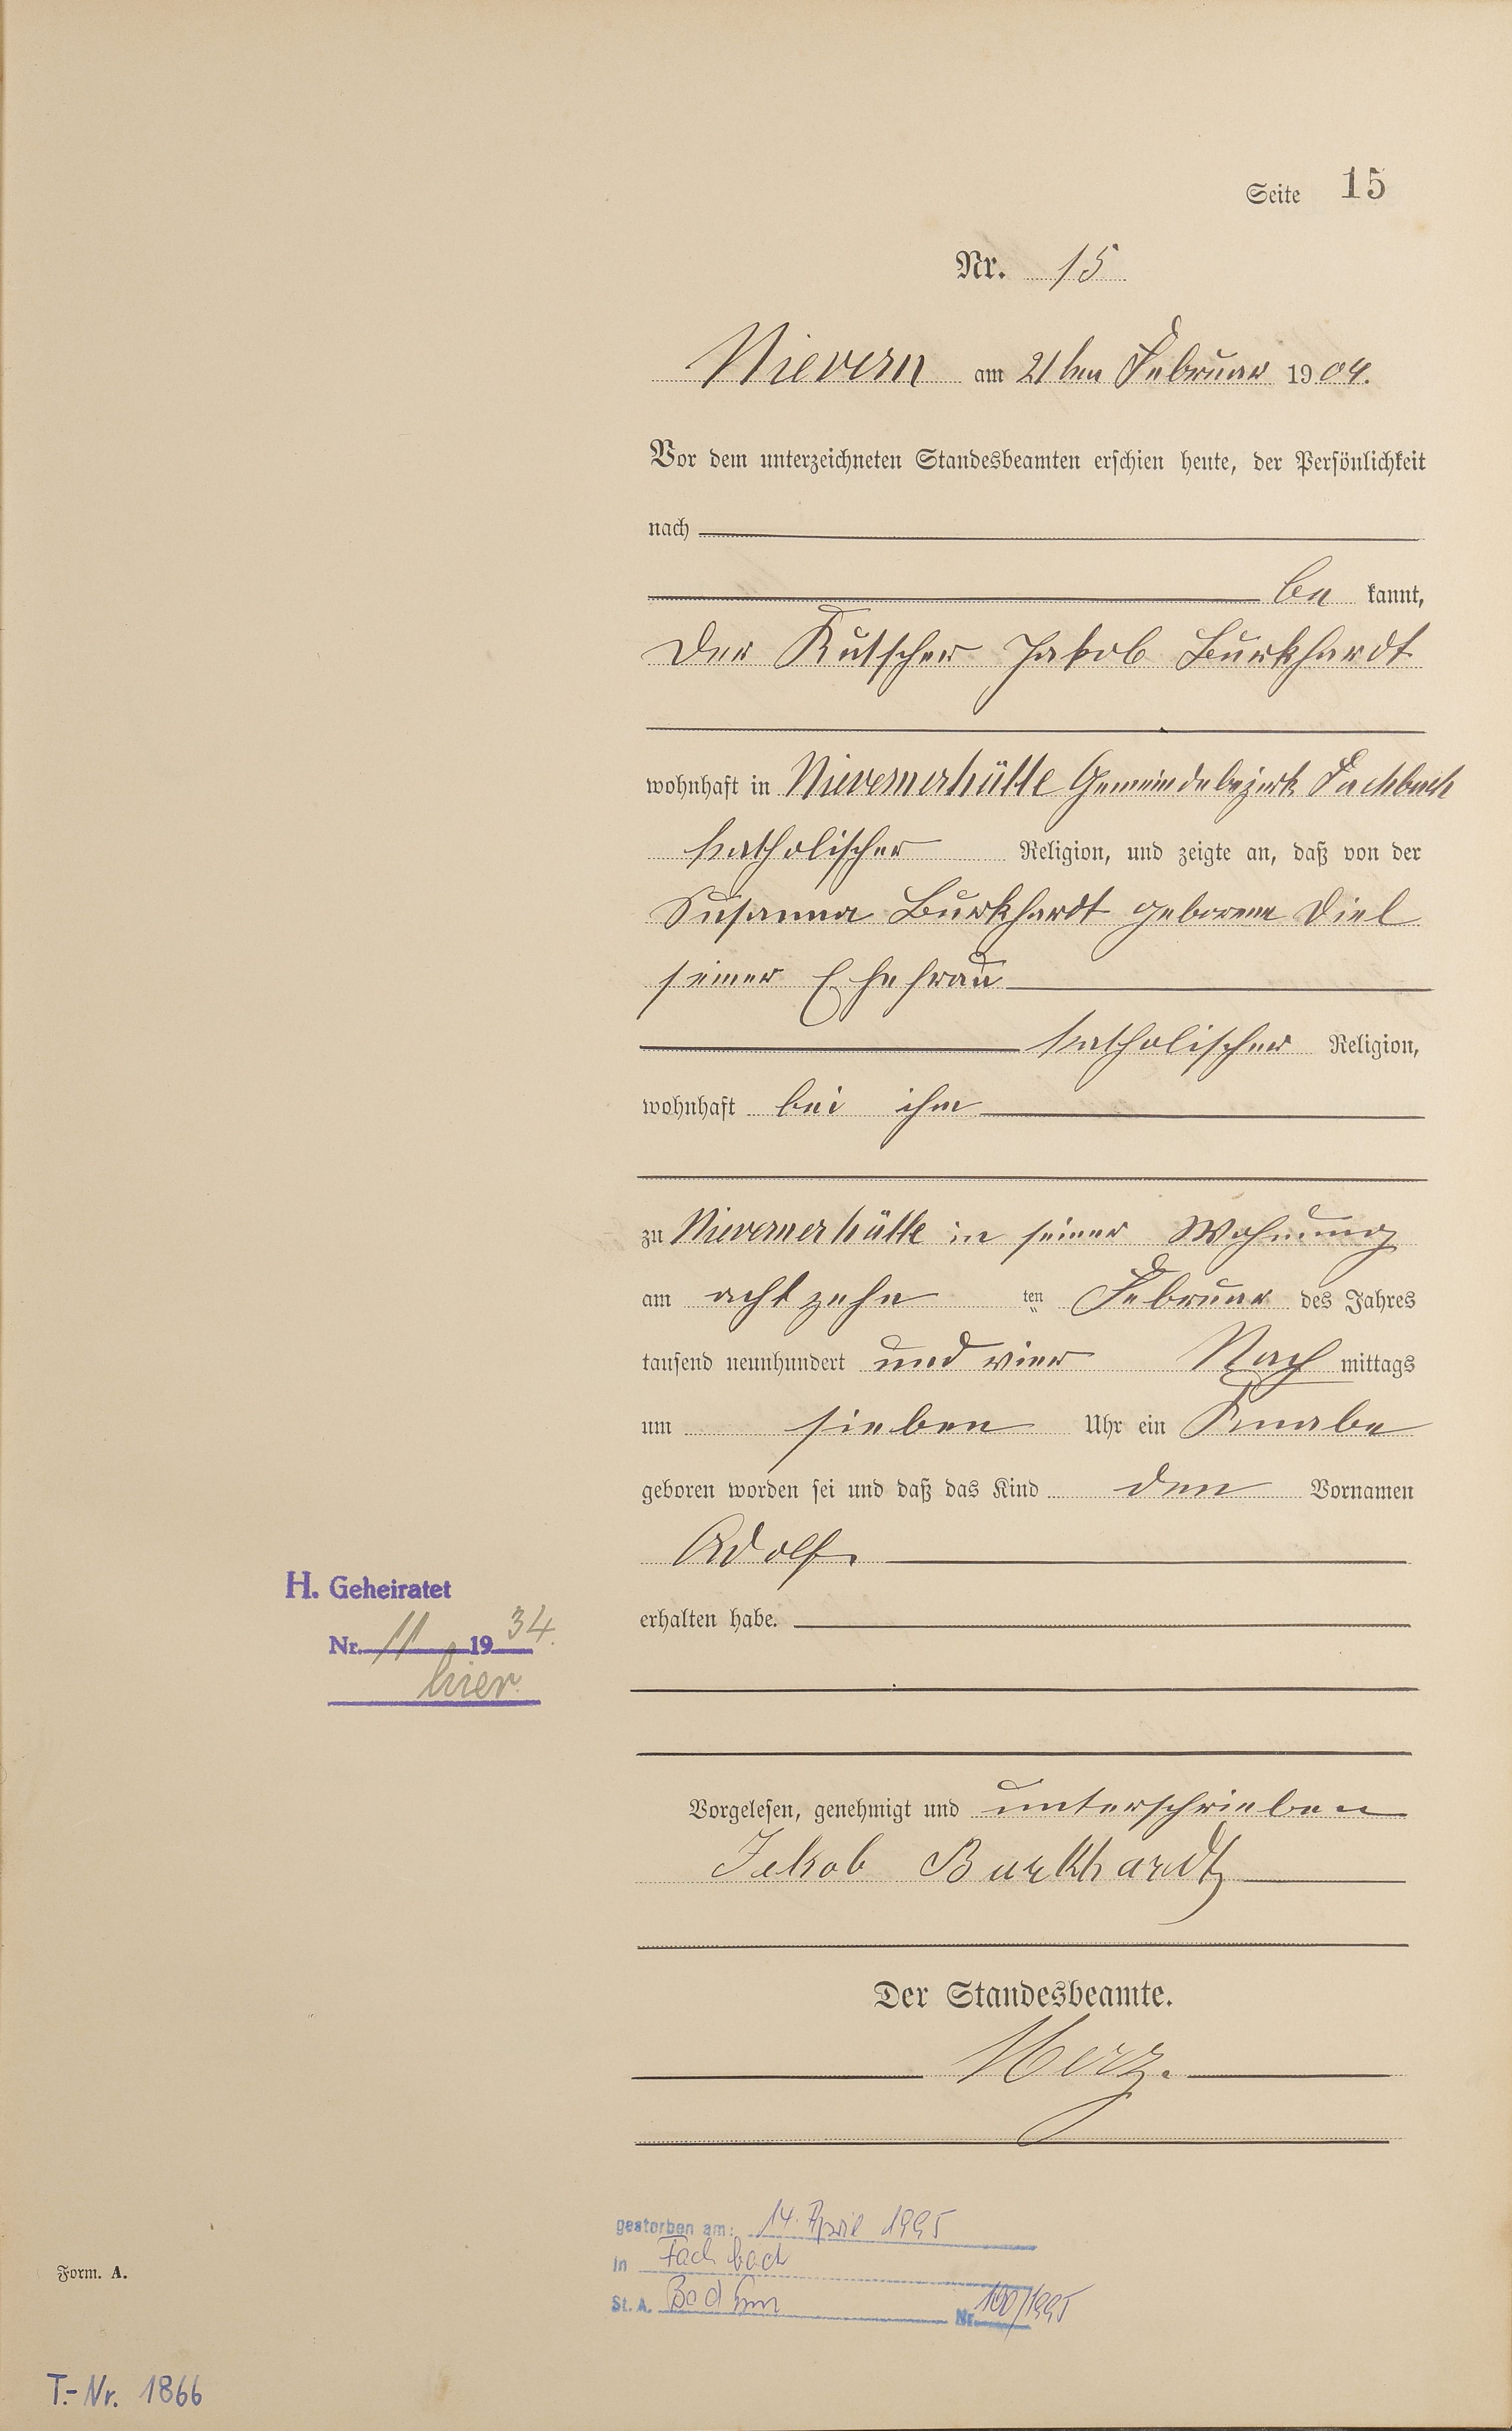 Seite 15
Nr. 15
Nievern am 21ten Februar 1904.
Vor dem unterzeichneten Standesbeamten erschien heute, der Persönlichkeit
nach
be kannt,
der Kutscher Jakob Burkhardt
wohnhaft in Nievernerhütte Gemeindebezirk Fachbach
katholischer Religion, und zeigte an, daß von der
Susanna Burkhardt geborene Diel
seiner Ehefrau
katholischer Religion,
wohnhaft bei ihm
zu Nievernerhütte in seiner Wohnung
am achtzehn ten Februar des Jahres
tausend neunhundert und vier Nach mittags
um sieben Uhr ein Knabe
geboren worden sei und daß das Kind den Vornamen
Adolf
H. Geheiratet
Nr. 11 1934.
hier
erhalten habe.
Vorgelesen, genehmigt und unterschrieben
Jakob Burkhardt
Der Standesbeamte.
Merz.
gestorben am: 14. April 1995
in Fachbach
St. A. Bad Ems Nr. 100/1995
Form. A.
T.-Nr. 1866